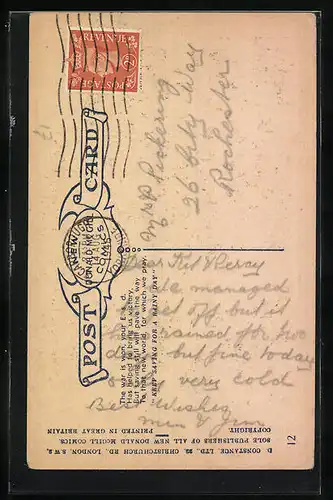 REVENUE
POSTAGE
POST CARD
NEW
DONALD McGILL
COMICS
Mrs P Pickering
26 City Way
Rochester
Dear Kit & Percy
We managed
off but it
rained for two
but fine today
very cold
Best Wishes
Jim
The war is won, your £ s. d.
Has helped to bring us victory,
But saving still will pave the way
To that new world, for which we pray.
"KEEP SAVING FOR A RAINY DAY"
D. CONSTANCE, LTD., 22, CHRISTCHURCH RD., LONDON, S.W.2,
SOLE PUBLISHERS OF ALL NEW DONALD McGILL COMICS.
COPYRIGHT. PRINTED IN GREAT BRITAIN